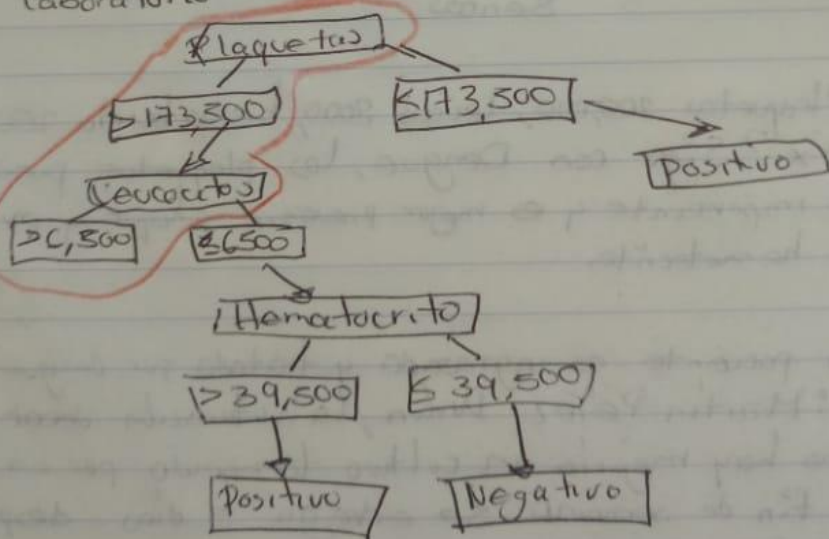 Laboratorio
Plaquetas
>173,500
≤173,500
Positivo
Leucocitos
>6,500
≤6500
Hematocrito
>39,500
≤39,500
Positivo
Negativo